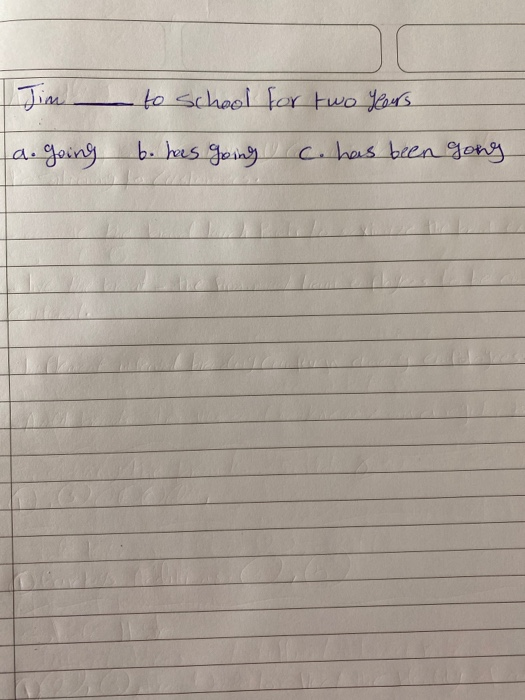 Jim ____ to school for two years
a. going b. has going c. has been gong